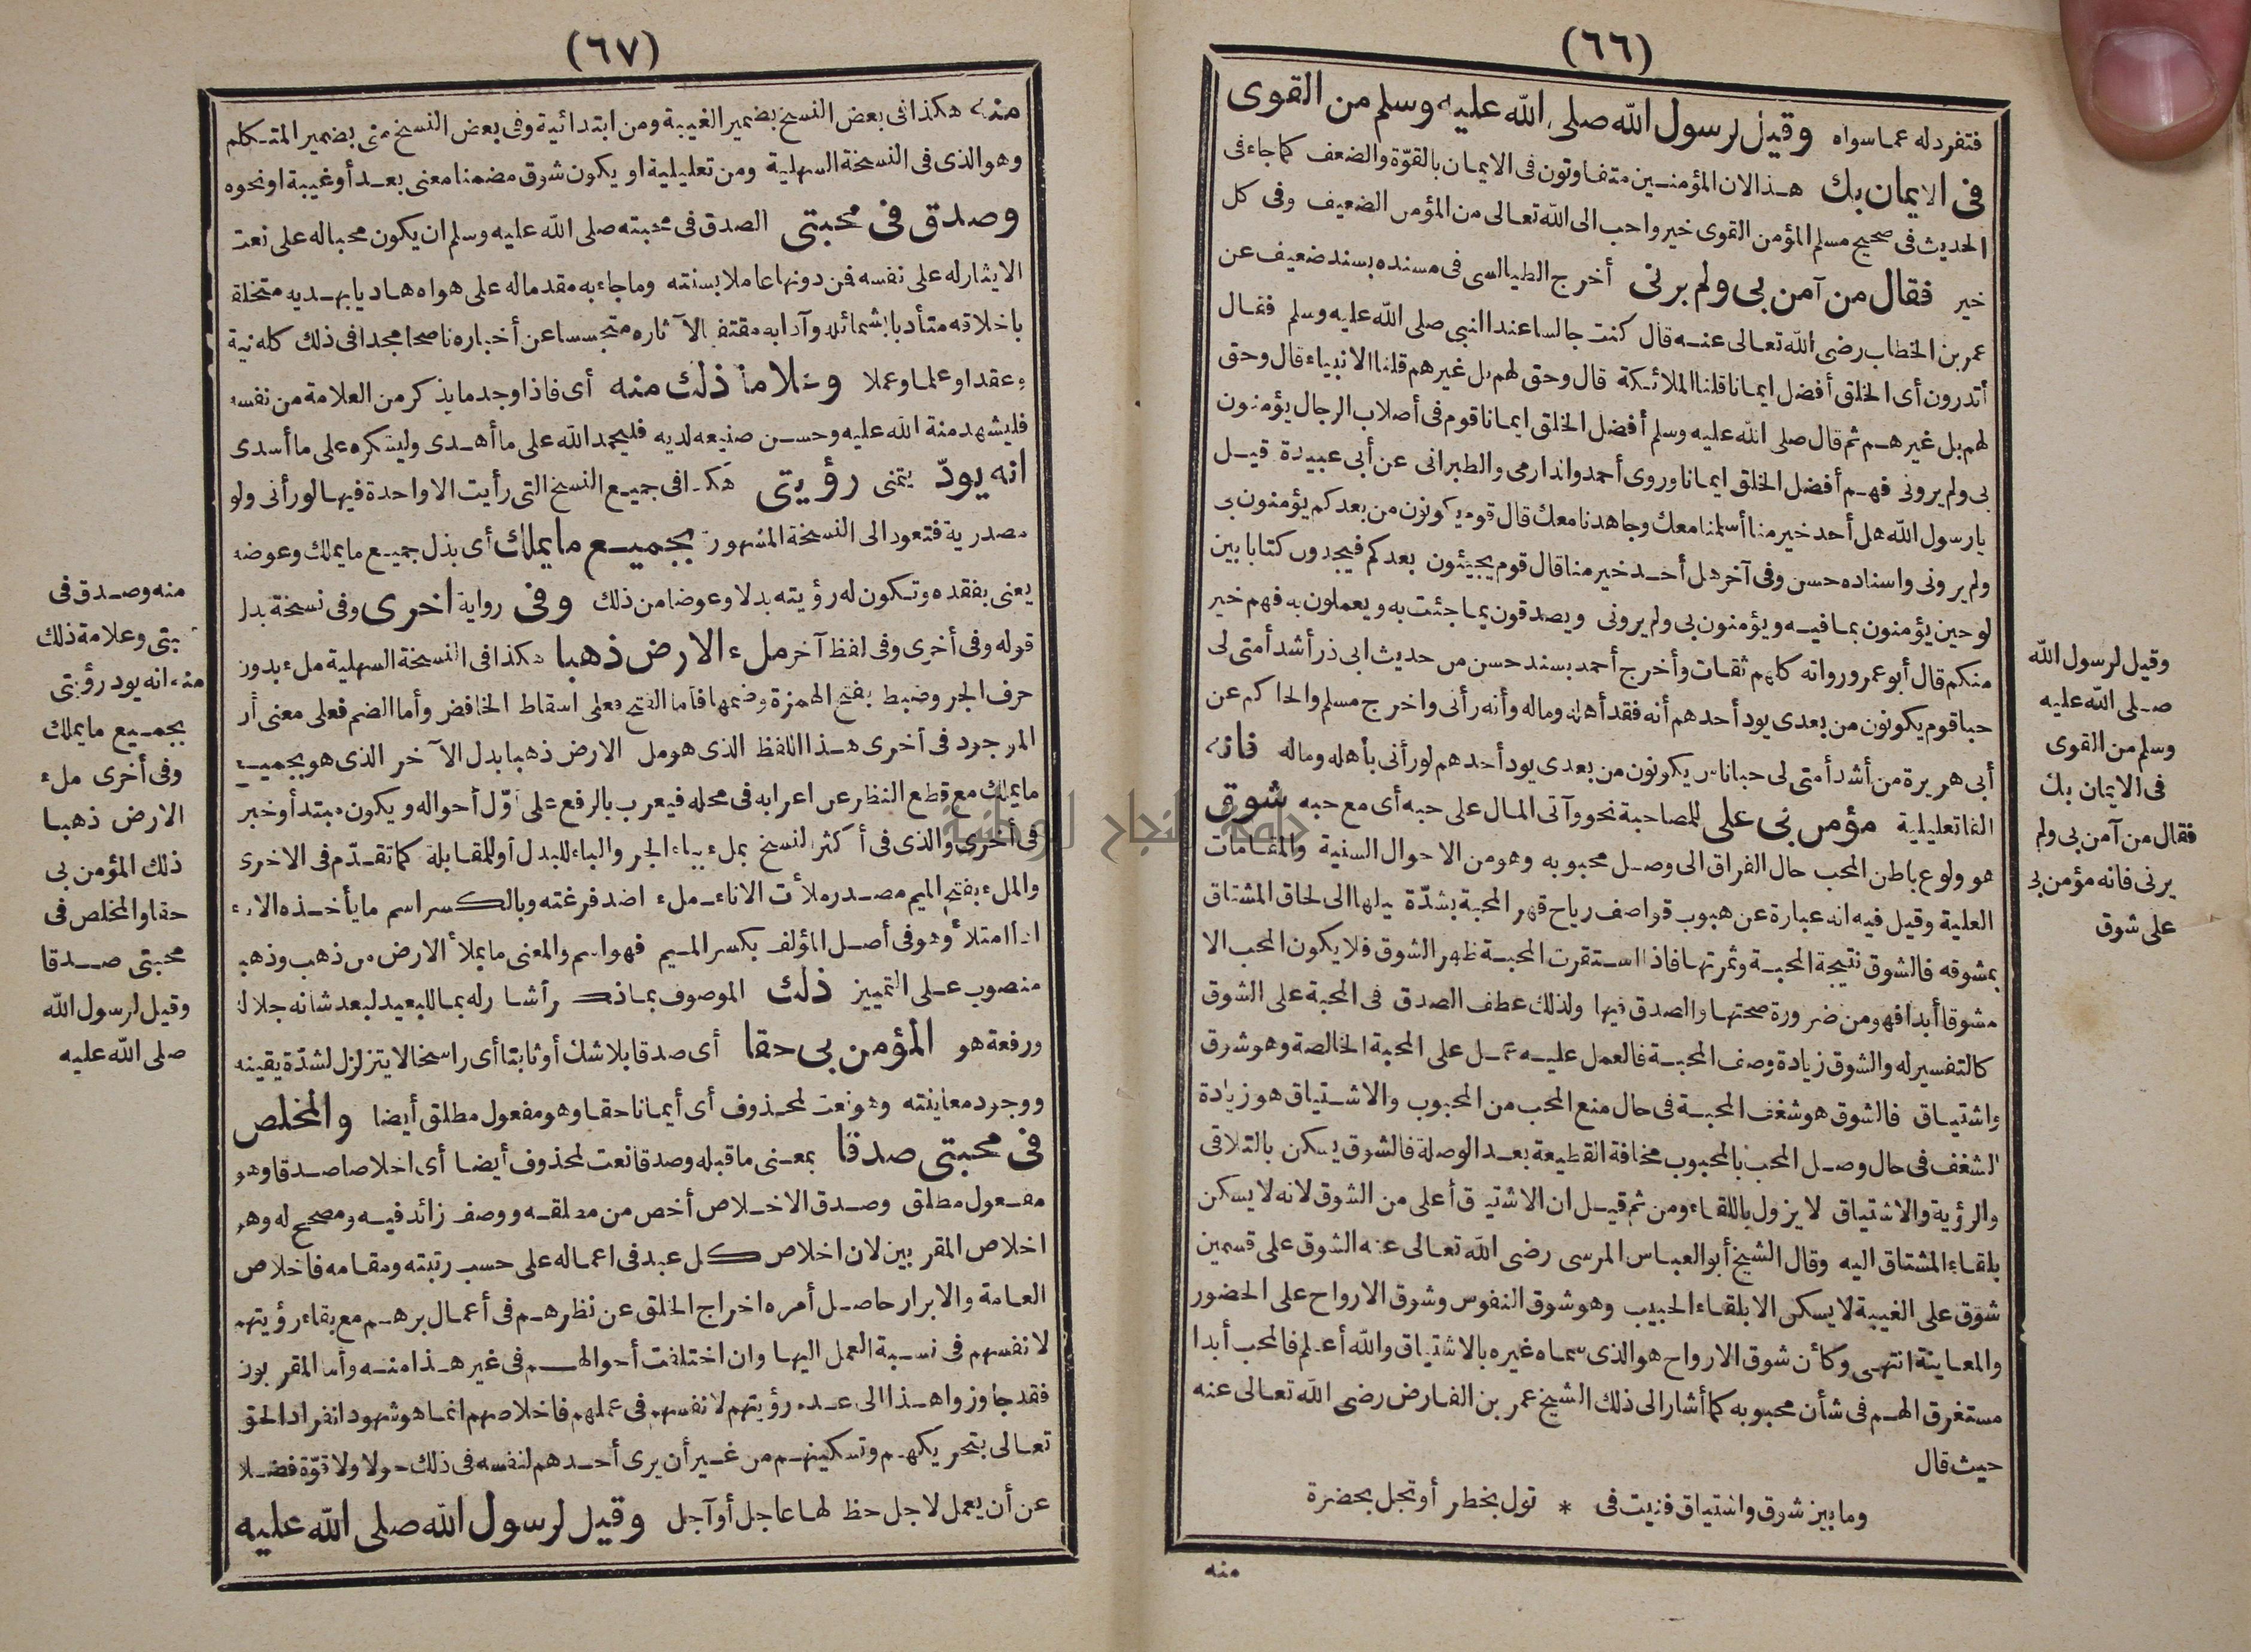 (٦٦)
فتفرد له عما سواه وقيل لرسول الله صلى الله عليه وسلم من القوى
فى الايمان بك هذا لان المؤمنين متفاوتون فى الايمان بالقوّة والضعف كما جاء فى
الحديث فى صحيح مسلم المؤمن القوى خير واحب الى الله تعالى من المؤمن الضعيف وفى كل
خير فقال من آمن بى ولم يرنى أخرج الطيالسى فى مسنده بسند ضعيف عن
عمر بن الخطاب رضى الله تعالى عنه قال كنت جالسا عند النبى صلى الله عليه وسلم فقال
أتدرون أى الخلق أفضل ايمانا قلنا الملائكة قال وحق لهم بل غيرهم قلنا الانبياء قال وحق
لهم بل غيرهم ثم قال صلى الله عليه وسلم أفضل الخلق ايمانا قوم فى أصلاب الرجال يؤمنون
بى ولم يرونى فهم أفضل الخلق ايمانا وروى أحمد والدارمى والطبرانى عن أبى عبيدة قيل
يا رسول الله هل أحد خير منا أسلمنا معك وجاهدنا معك قال قوم يكونون من بعدكم يؤمنون بى
ولم يرونى واسناده حسن وفى آخر هل أحد خير منا قال قوم يجيئون بعدكم فيجدون كتابا بين
لوحين يؤمنون بما فيه ويؤمنون بى ولم يرونى ويصدقون بما جئت به ويعملون به فهم خير
منكم قال أبو عمر ورواته كلهم ثقات وأخرج أحمد بسند حسن من حديث ابى ذر أشد أمتى لى
حبا قوم يكونون من بعدى يود أحدهم أنه فقد أهله وماله وأنه رأنى واخرج مسلم والحاكم عن
أبى هريرة من أشد أمتى لى حبا ناس يكونون من بعدى يود أحدهم لو رأنى بأهله وماله فانه
الفا تعليلية مؤمن بى على للمصاحبة نحو وآتى المال على حبه أى مع حبه شوق
هو ولوع باطن المحب حال الفراق الى وصل محبوبه وهو من الاحوال السنية والمقامات
العلية وقيل فيه انه عبارة عن هبوب قواصف رياح قهر المحبة بشدّة ميلها الى لحاق المشتاق
بمشوقه فالشوق نتيجة المحبة وثمرتها فاذا استقرت المحبة ظهر الشوق فلا يكون المحب الا
مشوقا أبدا فهو من ضرورة صحتها والصدق فيها ولذلك عطف الصدق فى المحبة على الشوق
كالتفسير له والشوق زيادة وصف المحبة فالعمل عليه عمل على المحبة الخالصة وهو شوق
واشتياق فالشوق هو شغف المحبة فى حال منع المحب من المحبوب والاشتياق هو زيادة
الشغف فى حال وصل المحب بالمحبوب مخافة القطيعة بعد الوصلة فالشوق يسكن بالتلاقى
والرؤية والاشتياق لا يزول باللقاء ومن ثم قيل ان الاشتياق أعلى من الشوق لانه لا يسكن
بلقاء المشتاق اليه وقال الشيخ أبو العباس المرسى رضى الله تعالى عنه الشوق على قسمين
شوق على الغيبة لا يسكن الا بلقاء الحبيب وهو شوق النفوس وشوق الارواح على الحضور
والمعاينة انتهى وكأن شوق الارواح هو الذى سماه غيره بالاشتياق والله أعلم فالمحب أبدا
مستغرق الهم فى شأن محبوبه كما أشار الى ذلك الشيخ عمر بن الفارض رضى الله تعالى عنه
حيث قال
وما بين شوق واشتياق فنيت فى * تول بخطر أو تجل بحضرة
منه
وقيل لرسول الله
صلى الله عليه
وسلم من القوى
فى الايمان بك
فقال من آمن بى ولم
يرنى فانه مؤمن بى
على شوق
(٦٧)
منه هكذا فى بعض النسخ بضمير الغيبة ومن ابتدائية وفى بعض النسخ منى بضمير المتكلم
وهو الذى فى النسخة السهلية ومن تعليلية او يكون شوق مضمنا معنى بعد أو غيبة او نحوه
وصدق فى محبتى الصدق فى محبته صلى الله عليه وسلم ان يكون محبا له على نعت
الايثار له على نفسه فمن دونها عاملا بسنته وما جاء به مقدما له على هواه هاديا بهديه متخلقا
باخلاقه متأدبا بشمائله وآدابه مقتفيا لآثاره متجسسا عن أخباره ناصحا مجدا فى ذلك كله نية
وعقدا وعلما وعملا وعلامة ذلك منه أى فاذا وجد ما يذكر من العلامة من نفسه
فليشهد منة الله عليه وحسن صنيعه لديه فليحمد الله على ما أهدى وليشكره على ما أسدى
انه يودّ يتمنى رؤيتى هكذا فى جميع النسخ التى رأيت الا واحدة فيها لو رأنى ولو
مصدرية فتعود الى النسخة المشهورة بجميع ما يملك أى بذل جميع ما يملك وعوضه
يعنى بفقده وتكون له رؤيته بدلا وعوضا من ذلك وفى رواية اخرى وفى نسخة بدل
قوله وفى أخرى وفى لفظ آخر ملء الارض ذهبا هكذا فى النسخة السهلية ملء بدون
حرف الجر وضبط بفتح الهمزة وضمها فأما الفتح فعلى اسقاط الخافض وأما الضم فعلى معنى أن
الموجود فى أخرى هذا اللفظ الذى هو ملء الارض ذهبا بدل الآخر الذى هو بجميع
ما يملك مع قطع النظر عن اعرابه فى محله فيعرب بالرفع على أوّل أحواله ويكون مبتدأ وخبر
فى أخرى والذى فى أكثر النسخ بملء بباء الجر والباء للبدل أو للمقابلة كما تقدّم فى الاخرى
والملء بفتح الميم مصدر ملأت الاناء ملء اضد فرغته وبالكسر اسم ما يأخذه الاناء
اذا امتلأ وهو فى أصل المؤلف بكسر الميم فهو اسم والمعنى ما يملأ الارض من ذهب وذهبا
منصوب على التمييز ذلك الموصوف بما ذكر وأشار له بما للبعيد لبعد شأنه جلالة
ورفعة هو المؤمن بى حقا أى صدقا بلا شك أو ثابتا أى راسخا لا يتزلزل لشدّة يقينه
ووجود معاينته وهو نعت لمحذوف أى أيمانا حقا وهو مفعول مطلق أيضا والمخلص
فى محبتى صدقا بمعنى ما قبله وصدقا نعت لمحذوف أيضا أى اخلاصا صدقا وهو
مفعول مطلق وصدق الاخلاص أخص من مطلقه ووصف زائد فيه ومصحح له وهو
اخلاص المقربين لان اخلاص كل عبد فى اعماله على حسب رتبته ومقامه فاخلاص
العامة والابرار حاصل أمره اخراج الخلق عن نظرهم فى أعمال برهم مع بقاء رؤيتهم
لانفسهم فى نسبة العمل اليها وان اختلفت أحوالهم فى غير هذا منه وأما المقربون
فقد جاوزوا هذا الى عدم رؤيتهم لانفسهم فى عملهم فاخلاصهم انما هو شهود انفراد الحق
تعالى بتحريكهم وتسكينهم من غير أن يرى أحدهم لنفسه فى ذلك حولا ولا قوّة فضلا
عن أن يعمل لاجل حظ لها عاجل أو آجل وقيل لرسول الله صلى الله عليه
منه وصدق فى
بتى وعلامة ذلك
منه انه يود رؤيتى
بجميع ما يملك
وفى أخرى ملء
الارض ذهبا
ذلك المؤمن بى
حقا والمخلص فى
محبتى صدقا
وقيل لرسول الله
صلى الله عليه
جامعة النجاح الوطنية